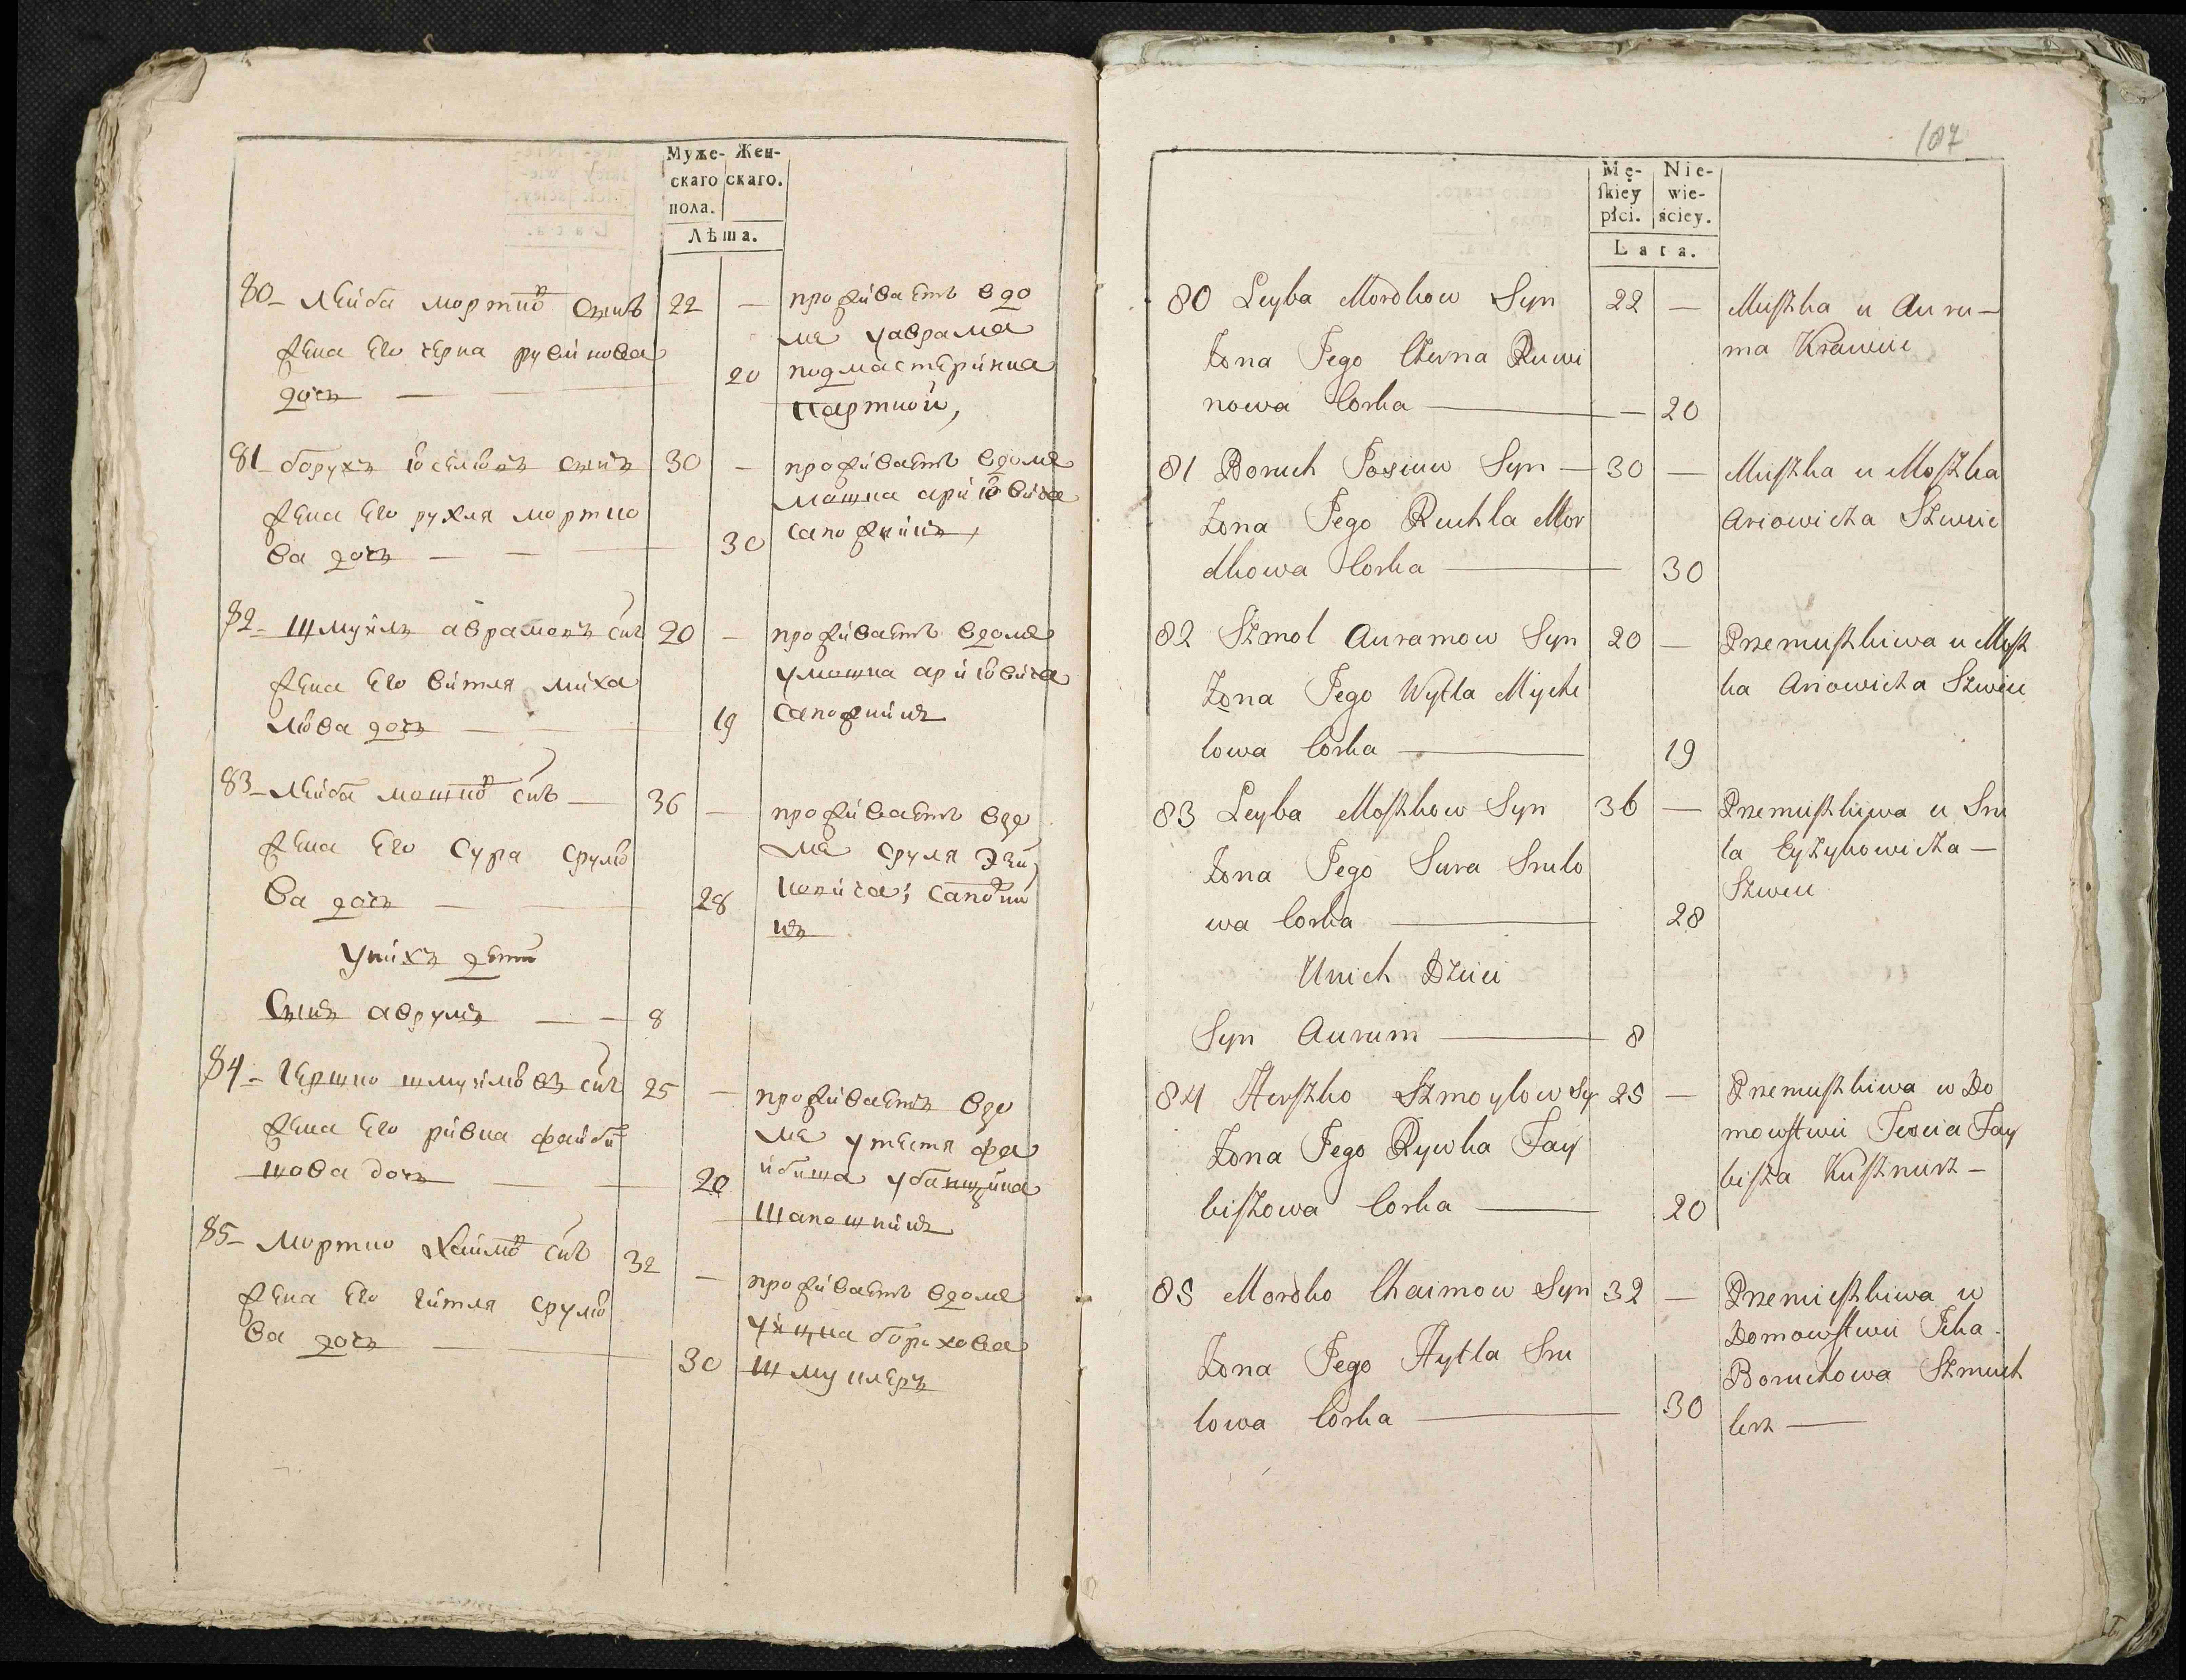 Муже- Жен-
скаго скаго.
пола.
Лѣта.
80 Лейба мортков сынъ 22 — проживаетъ вдо
жена Его черна рувинова ме уаврама
дочь — 20 подмастерика
партной,
81 борухъ иоселювъ сынъ 30 — проживаетъ вдоме
жена Его рухля мортко мошка ариовича
ва дочь — 30 сапожникъ,
82 Шмуйлъ аврамовъ снъ 20 — проживаетъ вдоме
жена Его витля миха умошка ариовича
лова дочь — 19 сапожникъ
83 Лейба мошков снъ — 36 — проживаетъ вдо
жена Его Сура срулю ме сруля
ва дочь — 28
унихъ дети
Сынъ аврумъ — 8
84 Гершко шмуйловъ снъ 25 — проживаетъ вдо
жена Его ривка файби ме утестя фа
шова дочь — 20 йбиша
Шапошникъ
85 мортко хаимов снъ 32 — проживаетъ вдоме
жена Его гитля срулю уицка борохова
ва дочь — 30 шмуклеръ
107
Mę- Nie-
skiey wie-
płci. ściey.
Lata.
80 Leyba Mordkow Syn 22 — Mieszka u Auru-
Żona Jego Czerna Ruwi ma Krawiec
nowa Corka — 20
81 Boruch Josiow Syn — 30 — Mieszka u Moszka
Żona Jego Ruchla Mor Ariowicza Szwiec
dkowa Corka — 30
82 Szmol Auramow Syn 20 — Przemiszkiwa u Mosz
Żona Jego Wytla Myche ka Ariowicza Szwiec
lowa Corka — 19
83 Leyba Moszkow Syn 36 — Przemiszkiwa u Sru
Żona Jego Sura Srulo la Eyzykowicza —
wa Corka — 28 Szwiec
Unich Dzieci
Syn Aurum — 8
84 Herszko Szmoylow Sy 25 — Przemiszkiwa w Do
Żona Jego Rywka Fay mowstwie Tescia Fay
biszowa Corka — 20 bisza Kusznirz —
85 Mordko Chaimow Syn 32 — Przemieszkiwa w
Żona Jego Hytla Sru Domowstwie Icka
lowa Corka — 30 Boruchowa Szmuk
lerz —